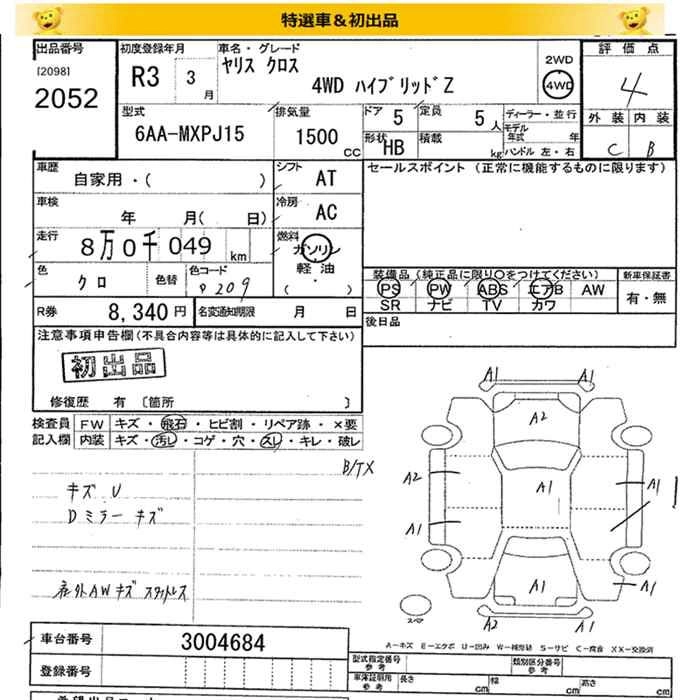 特選車&初出品
出品番号 [2098] 2052
初度登録年月 R3 3月
車名・グレード ヤリス クロス 4WD ハイブリッドZ
2WD 4WD
評価点 4
外装 内装 C B
型式 6AA-MXPJ15
排気量 1500 CC
ドア 5 定員 5人
形状 HB 積載 kg
ディーラー・並行
モデル年式 年
ハンドル 左・右
車歴 自家用・( )
シフト AT
セールスポイント (正常に機能するものに限ります)
車検 年 月( 日)
冷房 AC
走行 8万0千049 km
燃料 ガソリン 軽油 ( )
色 クロ 色替 色コード 209
装備品 (純正品に限り○をつけてください) 新車保証書
PS PW ABS エアB AW 有・無
SR ナビ TV カワ
R券 8,340円 名変通知期限 月 日
後日品
注意事項申告欄 (不具合内容等は具体的に記入して下さい)
初出品
修復歴 有 〔箇所 〕
検査員記入欄 FW キズ・飛石・ヒビ割・リペア跡・×要
内装 キズ・汚レ・コゲ・穴・スレ・キレ・破レ
B/TX
キズ U
Dミラー キズ
社外AWキズ スタットレス
A1 A1
A2
A2 A1 A1
A1
A1 A1
W A1
スペア
A-キズ E-エクボ U-凹み W-補修跡 S-サビ C-腐食 XX-交換済
車台番号 3004684
登録番号
型式指定番号 参考 類別区分番号 参考
車庫証明用 参考 長さ cm 幅 cm 高さ cm